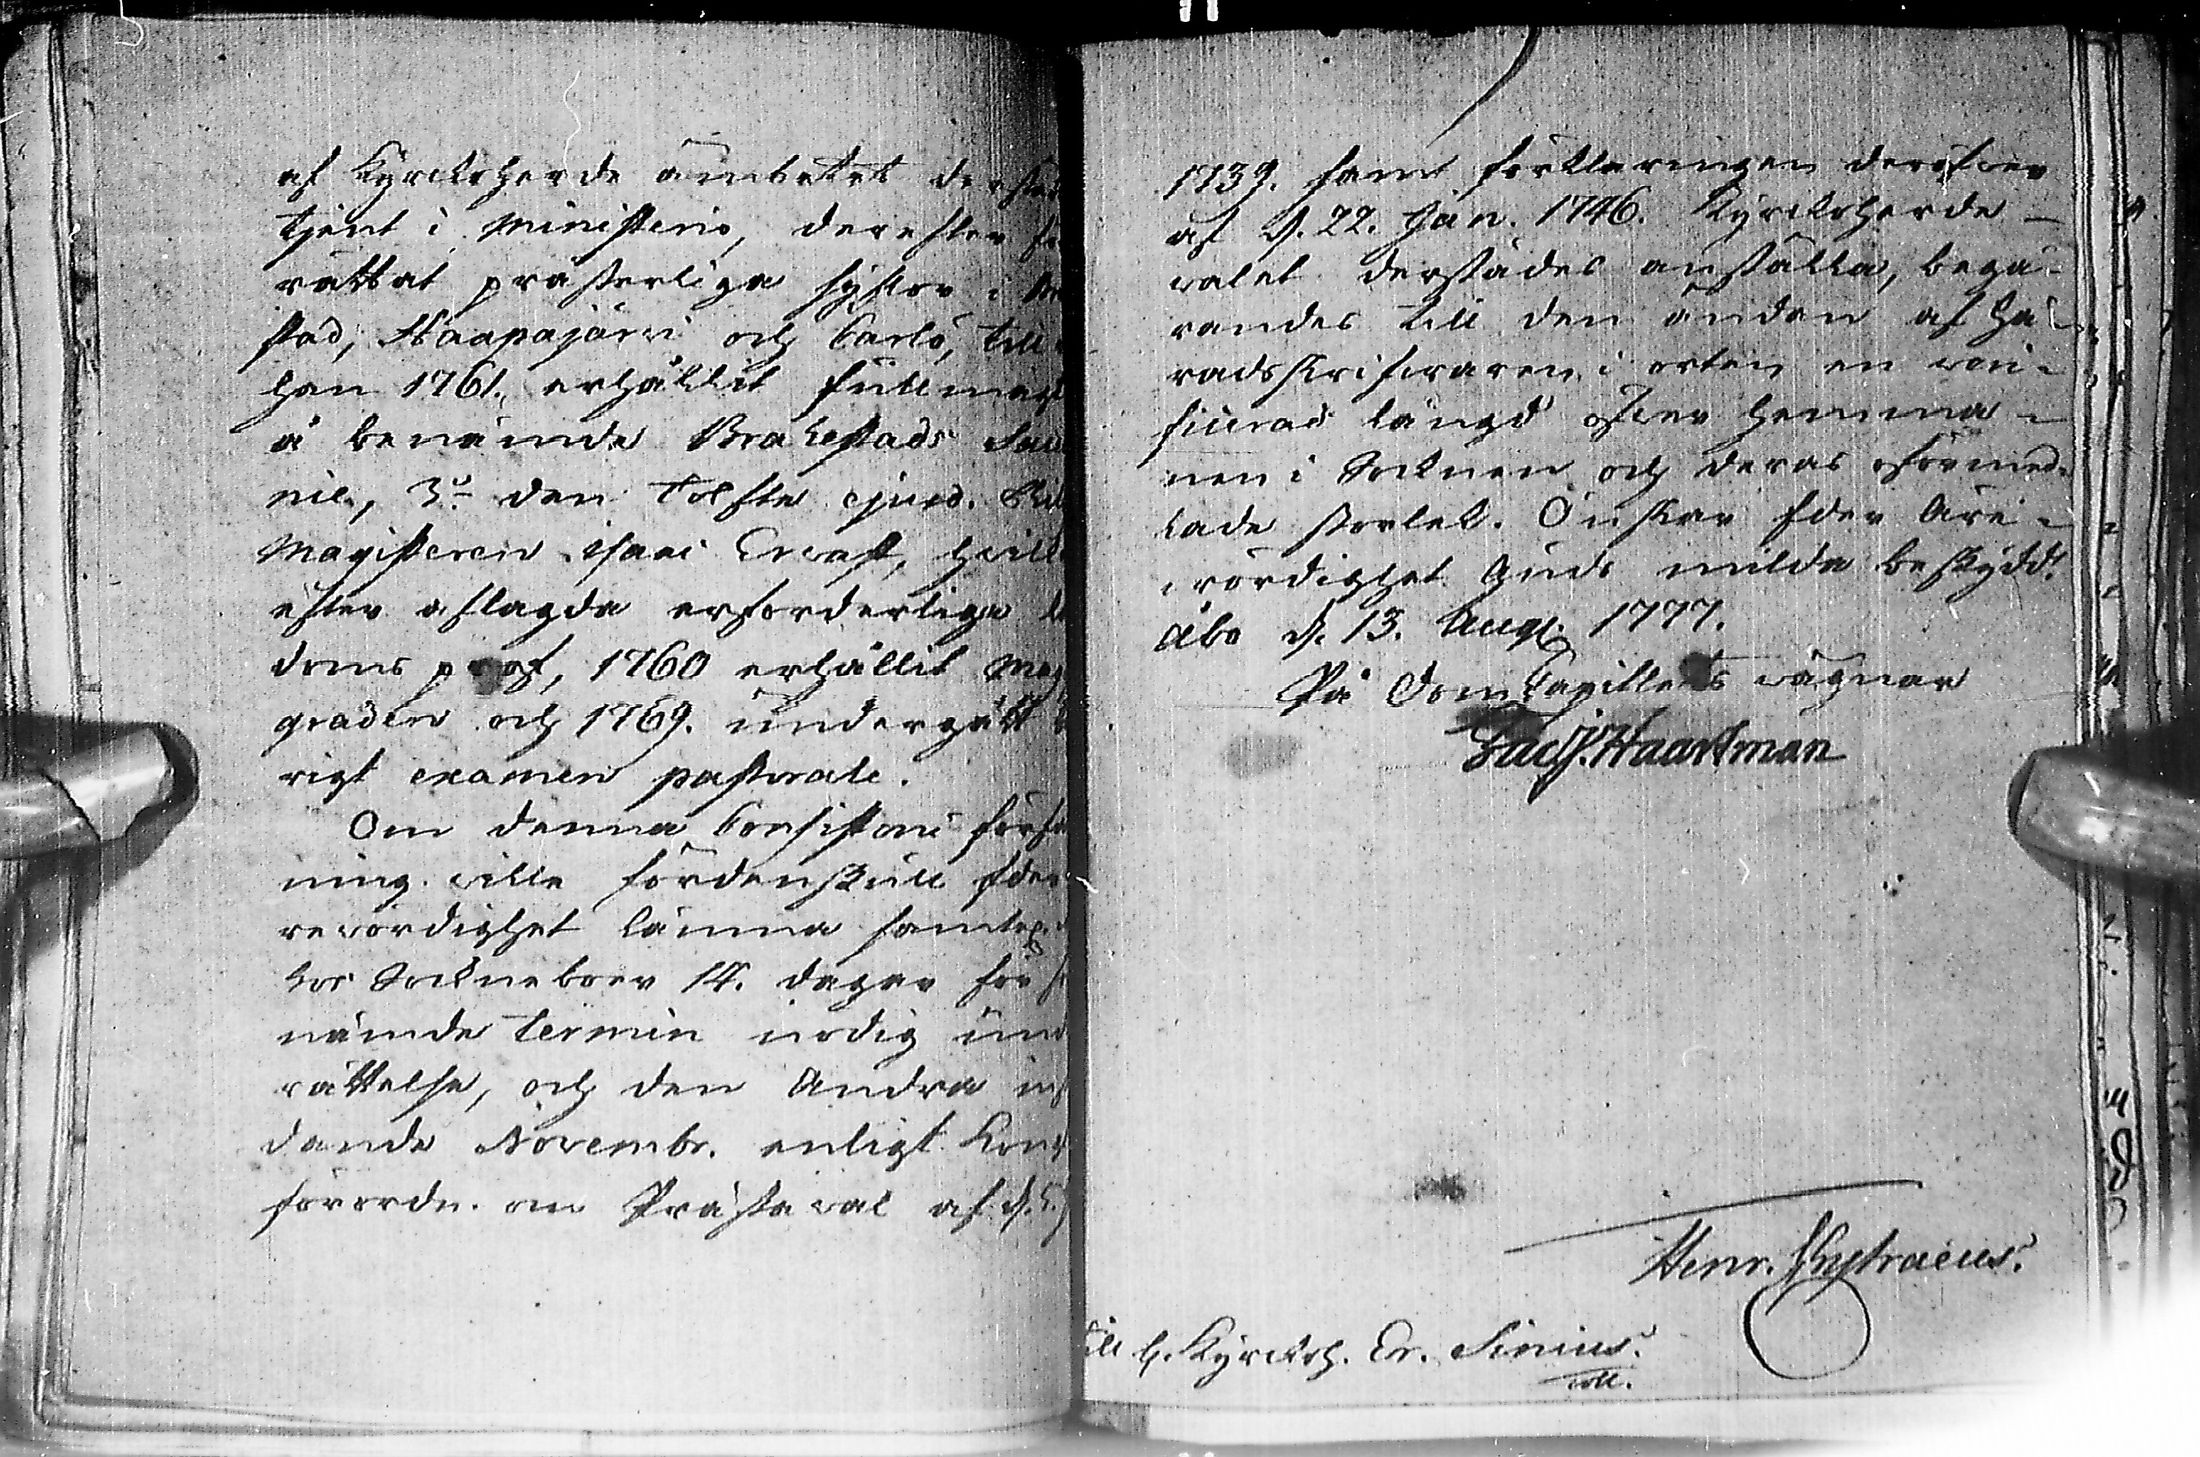 af Kyrckoherde ämbetet derstä
tjent i Ministerio, derefter
rättat prästerliga syslor i
stad, Haapajärvi och Carlö, till
han 1761. erhållit fullmagt
å benämde Brahestads
nie, 3:o den Tolfte ejusd.
Magisteren Isaac Ervast, hvilk
efter aflagda erforderliga
doms prof, 1760 erhållit Mag
graden och 1769. undergått
rigt examen pastorale.
Om denna Consistorii förfa
ning wille fördenskull Eder
rewördighet lämna samtel.
kor Sockneboer 14. dagar för
nämde Termin nödig und
rättelse, och den Andra
dande Novembr. enligt Kongl
förordn. om Prästawal af d.
1739. samt förklaringen deröfwer
af d. 22. Jan. 1746. Kyrckoherde-
walet derstädes anställa, begä-
randes till den ändan af Hä-
radsskrifwaren i orten en weri-
ficerad längd öfwer Hemma-
nen i Socknen och deras oförmed-
lade storlek. Önskar Eder Äre-
wördighet Guds milda beskydd!
Åbo d. 13. Aug. 1777.
På DomCapitlets wägnar
Jac. Haartman
Henr. Chytraeus.
till H. Kyrckoh. Er. Simius.
coll.